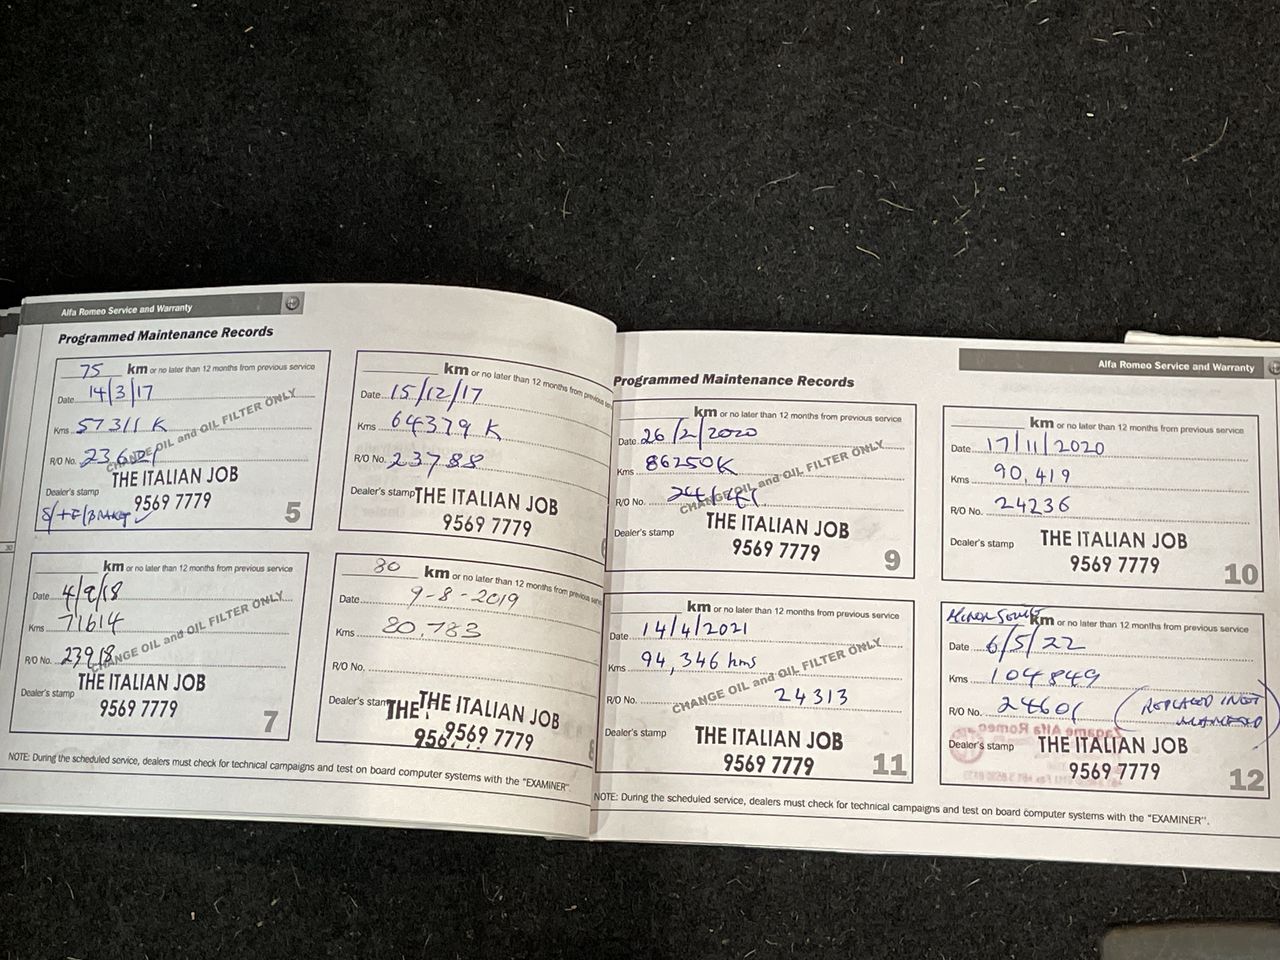 Alfa Romeo Service and Warranty
Programmed Maintenance Records
75 km or no later than 12 months from previous service
Date 14/3/17
Kms 57311 K
R/O No.
CHANGE OIL and OIL FILTER ONLY
THE ITALIAN JOB
Dealer's stamp 9569 7779
5
km or no later than 12 months from previous
Date 15/12/17
Kms 64379 K
R/O No. 23788
Dealer's stamp THE ITALIAN JOB
9569 7779
km or no later than 12 months from previous service
Date 4/9/18
Kms 71614
R/O No. 23918
CHANGE OIL and OIL FILTER ONLY
THE ITALIAN JOB
Dealer's stamp 9569 7779
7
80 km or no later than 12 months from previous
Date 9-8-2019
Kms 80,783
R/O No.
Dealer's stam THE THE ITALIAN JOB
956 9569 7779
8
NOTE: During the scheduled service, dealers must check for technical campaigns and test on board computer systems with the "EXAMINER".
30
Alfa Romeo Service and Warranty
Programmed Maintenance Records
km or no later than 12 months from previous service
Date 26/2/2020
Kms 86250K
R/O No.
CHANGE OIL and OIL FILTER ONLY
THE ITALIAN JOB
Dealer's stamp 9569 7779
9
km or no later than 12 months from previous service
Date 17/11/2020
Kms 90,419
R/O No. 24236
Dealer's stamp THE ITALIAN JOB
9569 7779
10
km or no later than 12 months from previous service
Date 14/4/2021
Kms 94,346 kms
R/O No. 24313
CHANGE OIL and OIL FILTER ONLY
Dealer's stamp THE ITALIAN JOB
9569 7779
11
km or no later than 12 months from previous service
Date 6/5/22
Kms 104849
R/O No. 24601
(REPLACED INLET
Dealer's stamp THE ITALIAN JOB
9569 7779
12
NOTE: During the scheduled service, dealers must check for technical campaigns and test on board computer systems with the "EXAMINER".